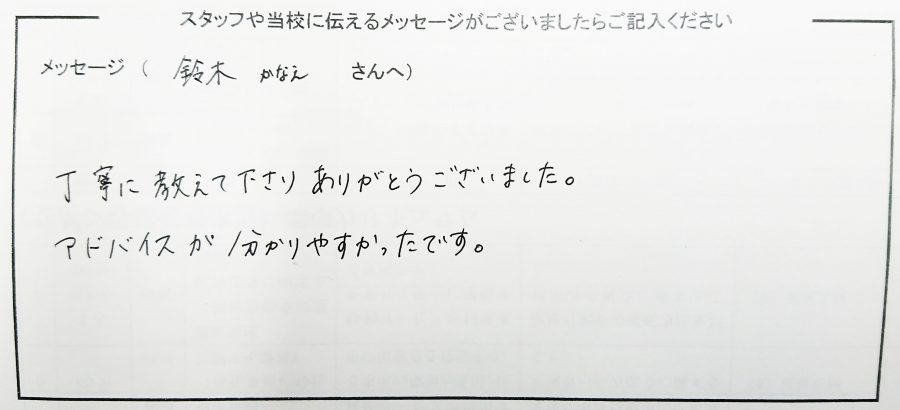 スタッフや当校に伝えるメッセージがございましたらご記入ください
メッセージ ( 鈴木 かなえ さんへ)
丁寧に教えて下さりありがとうございました。
アドバイスが分かりやすかったです。